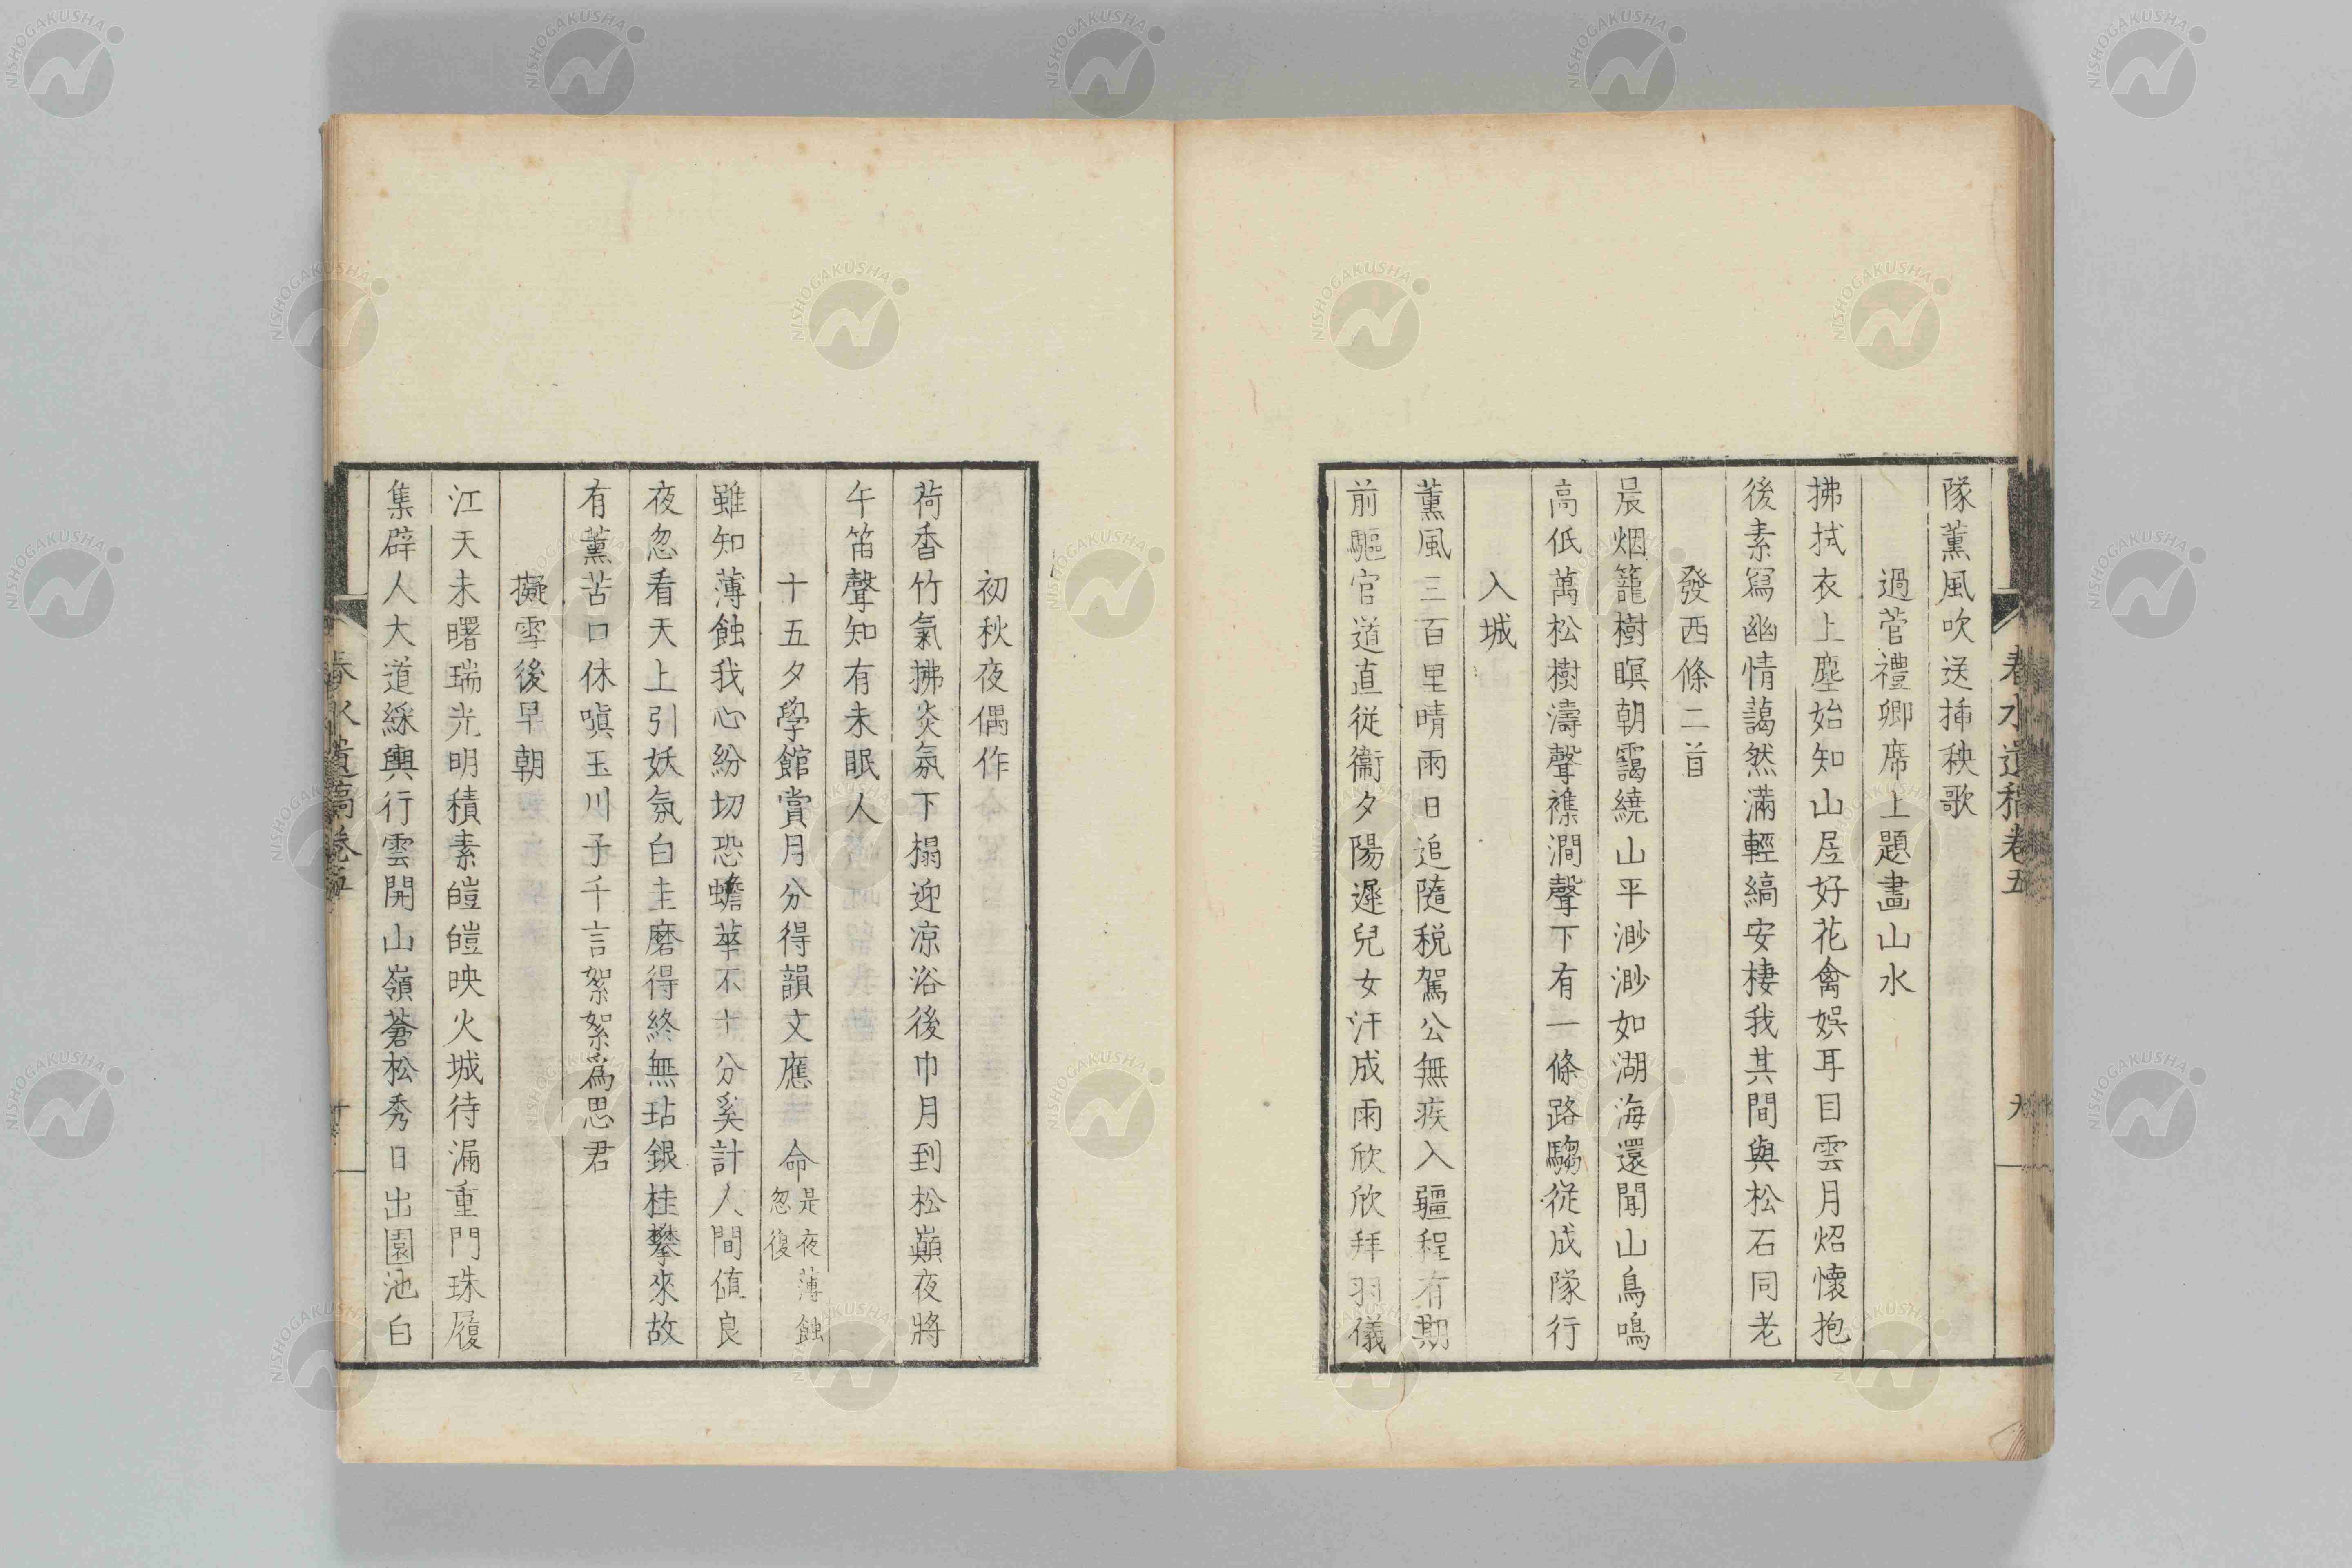 春水遺稿卷五
九
隊薫風吹送挿秧歌
過菅禮卿席上題畫山水
拂拭衣上塵始知山居好花禽娯耳目雲月炤懷抱
後素寫幽情藹然滿輕縞安棲我其間與松石同老
發西條二首
晨烟籠樹暝朝靄繞山平渺渺如湖海還聞山鳥鳴
高低萬松樹濤聲襍澗聲下有一條路騶從成隊行
入城
薫風三百里晴雨日追隨税駕公無疾入疆程有期
前驅官道直従衞夕陽遲兒女汗成雨欣欣拜羽儀
初秋夜偶作
荷香竹氣拂炎氛下榻迎凉浴後巾月到松巓夜將
午笛聲知有未眠人
十五夕學館賞月分得韻文應 命是夜薄蝕忽復
雖知薄蝕我心紛切恐蟾華不十分奚計人間値良
夜忽看天上引妖氛白圭磨得終無玷銀桂攀來故
有薫苦口休嗔玉川子千言絮絮爲思君
擬雪後早朝
江天未曙瑞光明積素皚皚映火城待漏重門珠履
集辟人大道綵輿行雲開山嶺蒼松秀日出園池白
春水遺稿卷五
十
NISHOGAKUSHA